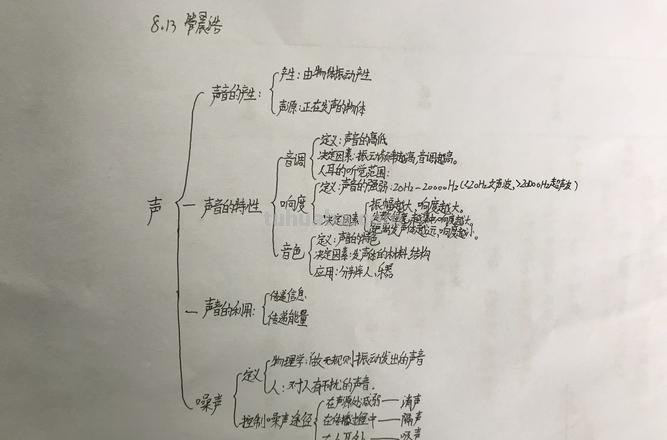 8.13 管晨浩
声
声音的产生:
产生:由物体振动产生
声源:正在发声的物体
声音的特性
音调
定义:声音的高低
决定因素:振动频率越高,音调越高。
人耳的听觉范围:
响度
定义:声音的强弱:20Hz-20000Hz(<20Hz次声波,>20000Hz超声波)
决定因素
振幅越大,响度越大。
响度越大。
距离发声体越远,响度越小。
音色
定义:声音的特色
决定因素:发声体的材料、结构
应用:分辨人、乐器
声音的利用:
传递信息
传递能量
噪声
定义
物理学:做无规则振动发出的声音
人:对人有干扰的声音.
控制噪声途径
在声源处减弱——消声
在传播过程中——隔声
在人耳处——吸声